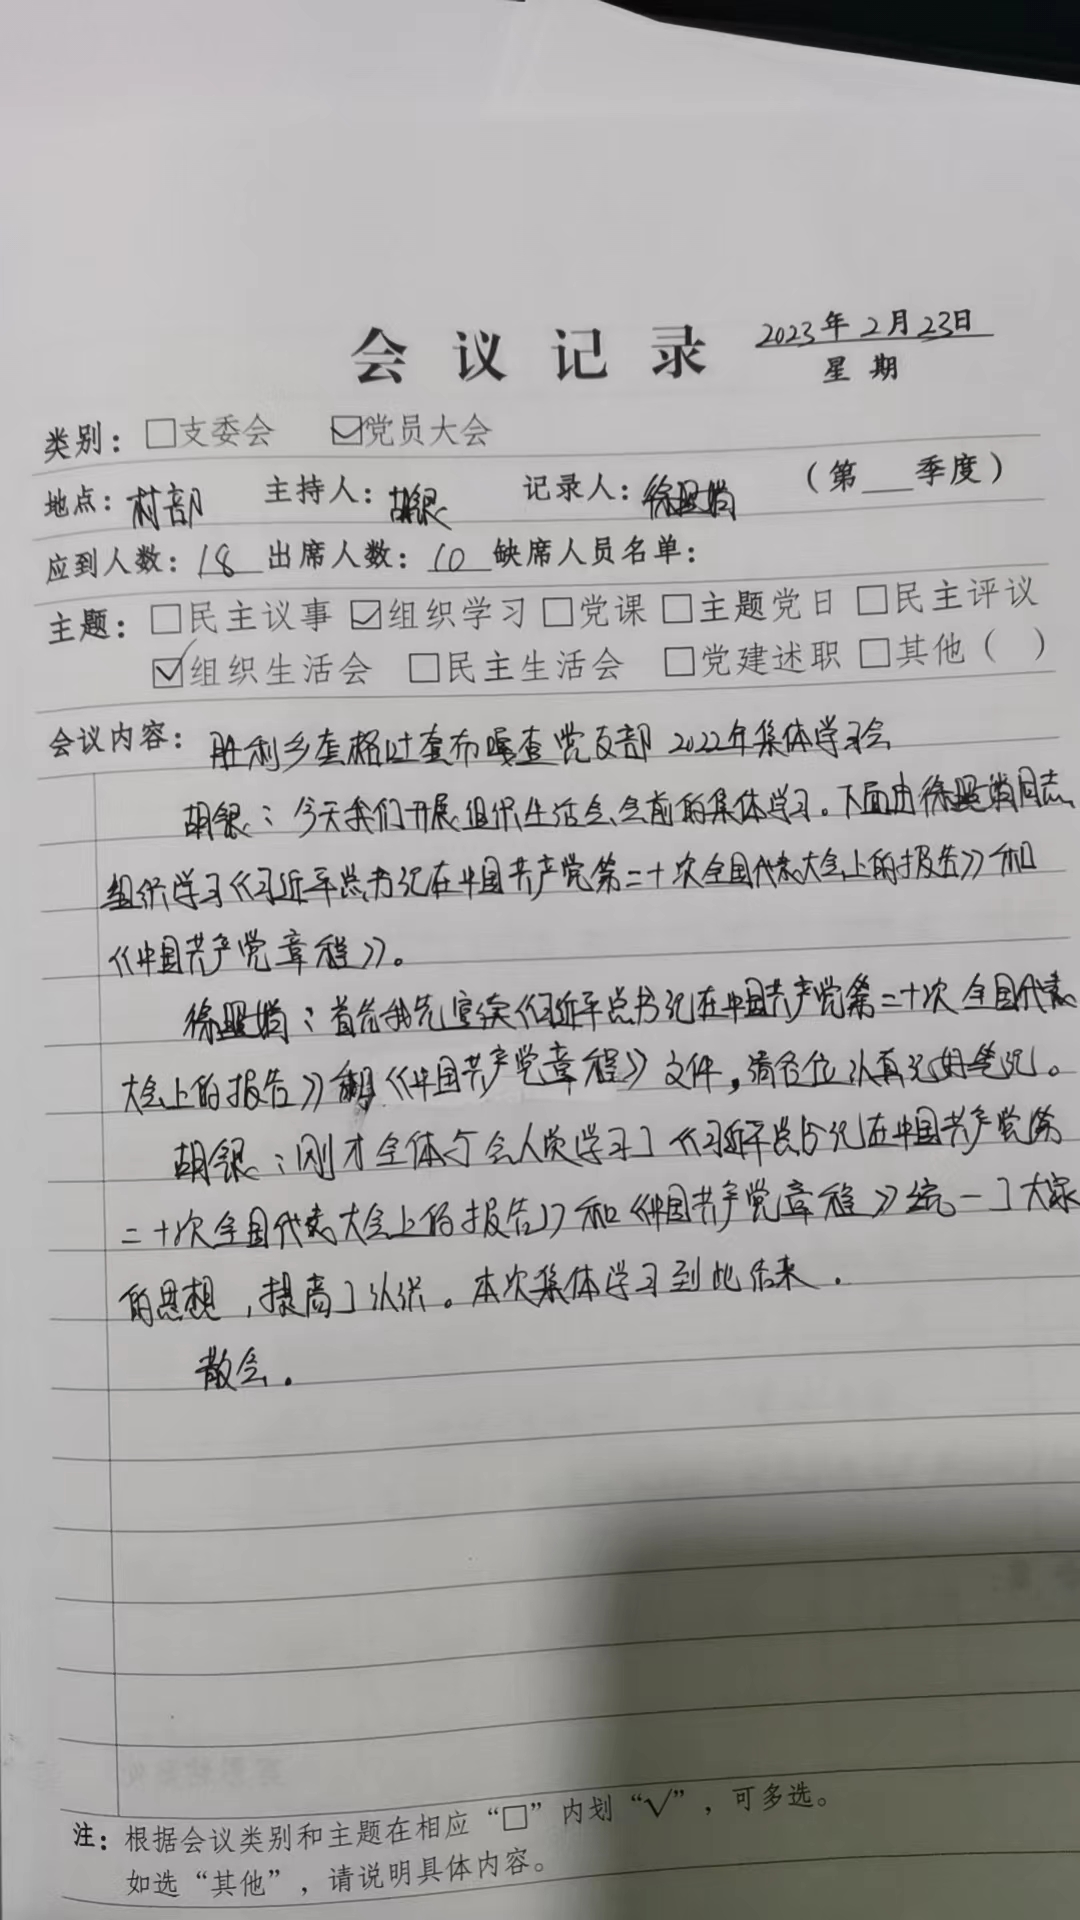 会议记录 2023年2月23日
星期
类别：□支委会 ☑党员大会
地点：村部 主持人：胡银 记录人：徐盟娟 （第___季度）
应到人数：18 出席人数：10 缺席人员名单：
主题：□民主议事 ☑组织学习 □党课 □主题党日 □民主评议
☑组织生活会 □民主生活会 □党建述职 □其他（ ）
会议内容：胜利乡查格吐查布嘎查党支部2022年集体学习会
胡银：今天我们开展组织生活会，会前的集体学习。下面由徐盟娟同志
组织学习《习近平总书记在中国共产党第二十次全国代表大会上的报告》和
《中国共产党章程》。
徐盟娟：首先我先宣读《习近平总书记在中国共产党第二十次全国代表
大会上的报告》和《中国共产党章程》文件，请各位认真记好笔记。
胡银：刚才全体与会人员学习了《习近平总书记在中国共产党第
二十次全国代表大会上的报告》和《中国共产党章程》统一了大家
的思想，提高了认识。本次集体学习到此结束．
散会。
注：根据会议类别和主题在相应“□”内划“√”，可多选。
如选“其他”，请说明具体内容。